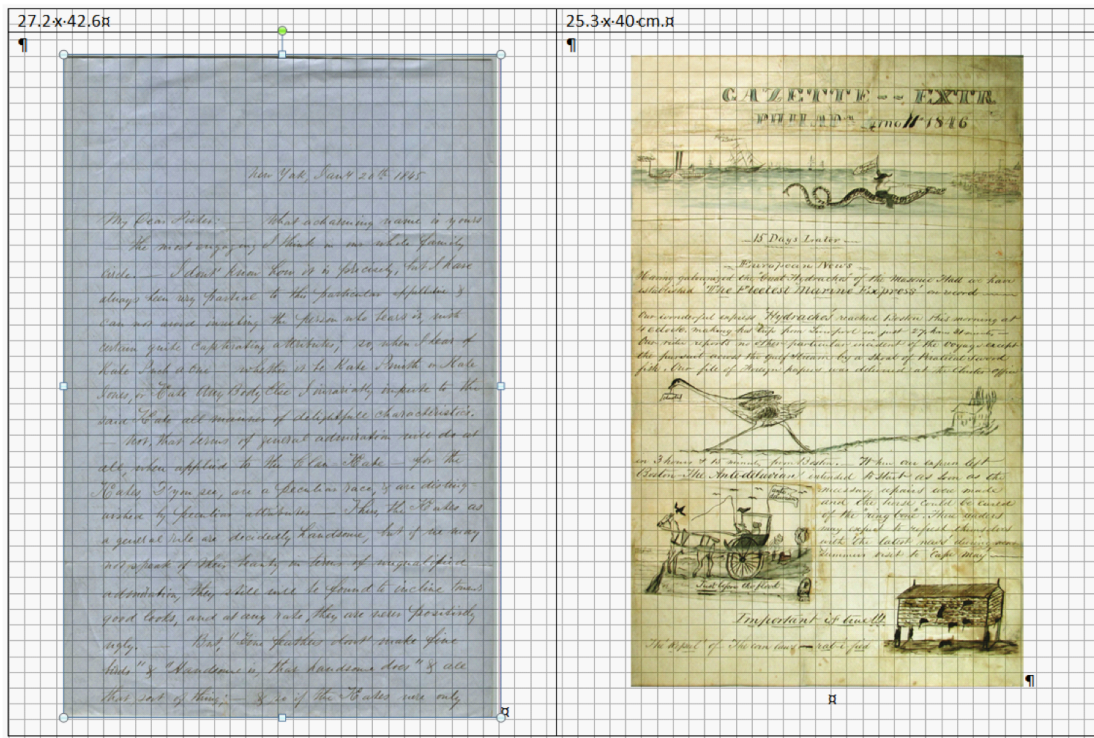 27.2·x·42.6¤
25.3·x·40·cm.¤
¶
¶
New York, Jany 20th 1845
My Dear Kate: — What a charming name is yours
the most engaging I think in our whole family
circle. — I don't know how it is precisely, but I have
always been very partial to this particular appellative &
can not avoid investing the person who bears it, with
certain quite captivating attributes; so, when I hear of
Kate
whether it be Kate Smith or Kate
Jones, or Cate Any Body Else I invariably impute to the
said Cate all manner of delightfull characteristics.
— Not, that terms of general admiration will do at
all, when applied to the Clan Kate — for the
Kates, D'you see, are a peculiar race, & are disting-
uished by peculiar attributes. Thus, the Kates as
a general rule are decidedly handsome, but if we may
not speak of their beauty in terms of unqualified
admiration, they still will be found to incline towards
good looks, and at any rate, they are never positively
ugly. — But, "Fine feathers don't make fine
birds" & "Handsome is, that handsome does" & all
that sort of thing; — & as if the Kates were only
¤
GAZETTE -- EXTR
PHILAD 11 1846
— 15 Days Later —
— European News —
Having galvanized the Great Hydrachos of the Masonic Hall we have
established "The Fleetest Marine Express" on record
Our wonderful express "Hydrachos" reached Boston this morning at
4 oclock, making his trip from Liverpool in just
Our rider reports no other particular incident of the voyage except
the pursuit across the Gulf Stream by a shoal of Piratical Sword
fish. Our file of Foreign papers was delivered at the
in 3 hours & 15 minutes from Boston. — When our express left
Boston "The Antediluvian" intended to start as soon as the
necessary repairs were made
and the horse could be cured
of the "ring bone". Their readers
may expect to refresh themselves
with the latest news during
summer visit to Cape May
Just upon the flood
Important if true!!!
The Repeal of The corn laws —
¶
¤